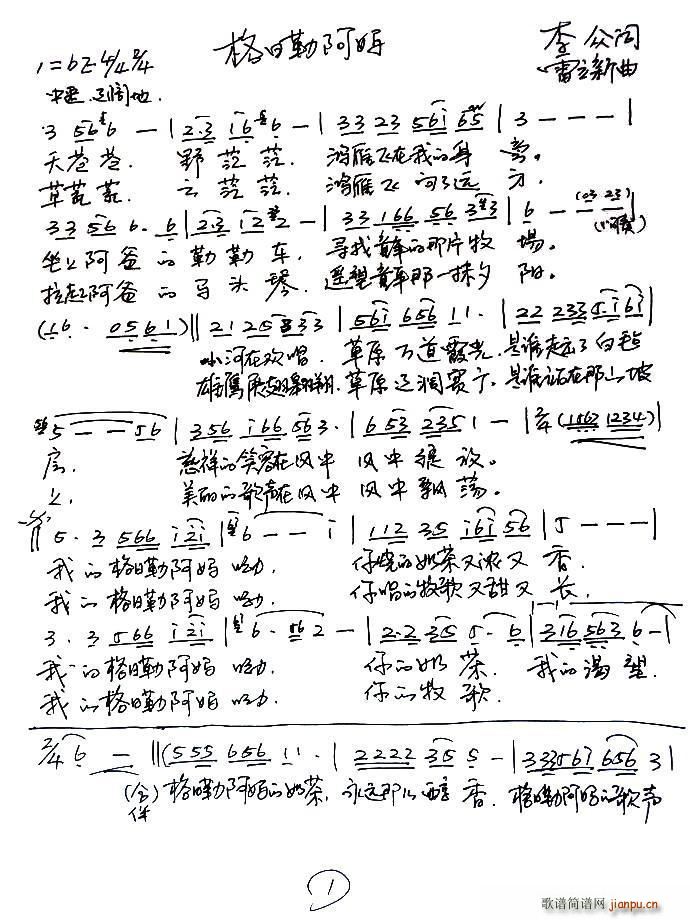 格日勒阿妈
李众问
1=bE 4/4 2/4
雷立新曲
中速 辽阔地
3 56 6 — | 2·3 1 6 6 — | 3 3 2 3 5 6 i 6 5 | 3 — — — |
天苍苍. 野茫茫. 鸿雁飞在我的身旁。
草荒荒. 云茫茫. 鸿雁飞向了远方.
3 3 5 6 6. 6 | 2·3 1 2 2 — | 3 3 1 6 6 5 6 3 3 | 6 — — (03 23)
坐上阿爸的勒勒车. 寻找童年的那片牧场。
拉起阿爸的马头琴. 遥望童年那一抹夕阳。
(16 · 0561) || 21 25 3 33 | 56i 656 11· | 22 233 5·i 6i |
小河在欢唱. 草原万道霞光. 是谁走近了白毡
雄鹰展翅翱翔. 草原辽阔宽广. 是谁站在那山坡
5 — — 56 | 356 i66 56 3· | 6 53 235 1 — | 2/4 (1563 1234) |
房. 慈祥的笑容在风中 风中绽放。
上. 美丽的歌声在风中 风中飘荡。
5 · 3 566 i2i | 6 — — i | 112 35 i6i 56 | 5 — — — |
我的格日勒阿妈 呦. 你烧的奶茶又浓又香.
我的格日勒阿妈 呦. 你唱的牧歌又甜又长.
3 · 3 566 i2i | 6 · 56 2 — | 2·2 35 5· 6 | 316 563 6 — |
我的格日勒阿妈 呦. 你的奶茶. 我的渴望.
我的格日勒阿妈 呦. 你的牧歌.
2/4 6 — || (555 656 11· | 2222 35 5 — | 33567 656 3 |
(合伴) 格日勒阿妈的奶茶. 永远那么醇香. 格日勒阿妈的歌声
1
歌谱简谱网
jianpu.cn